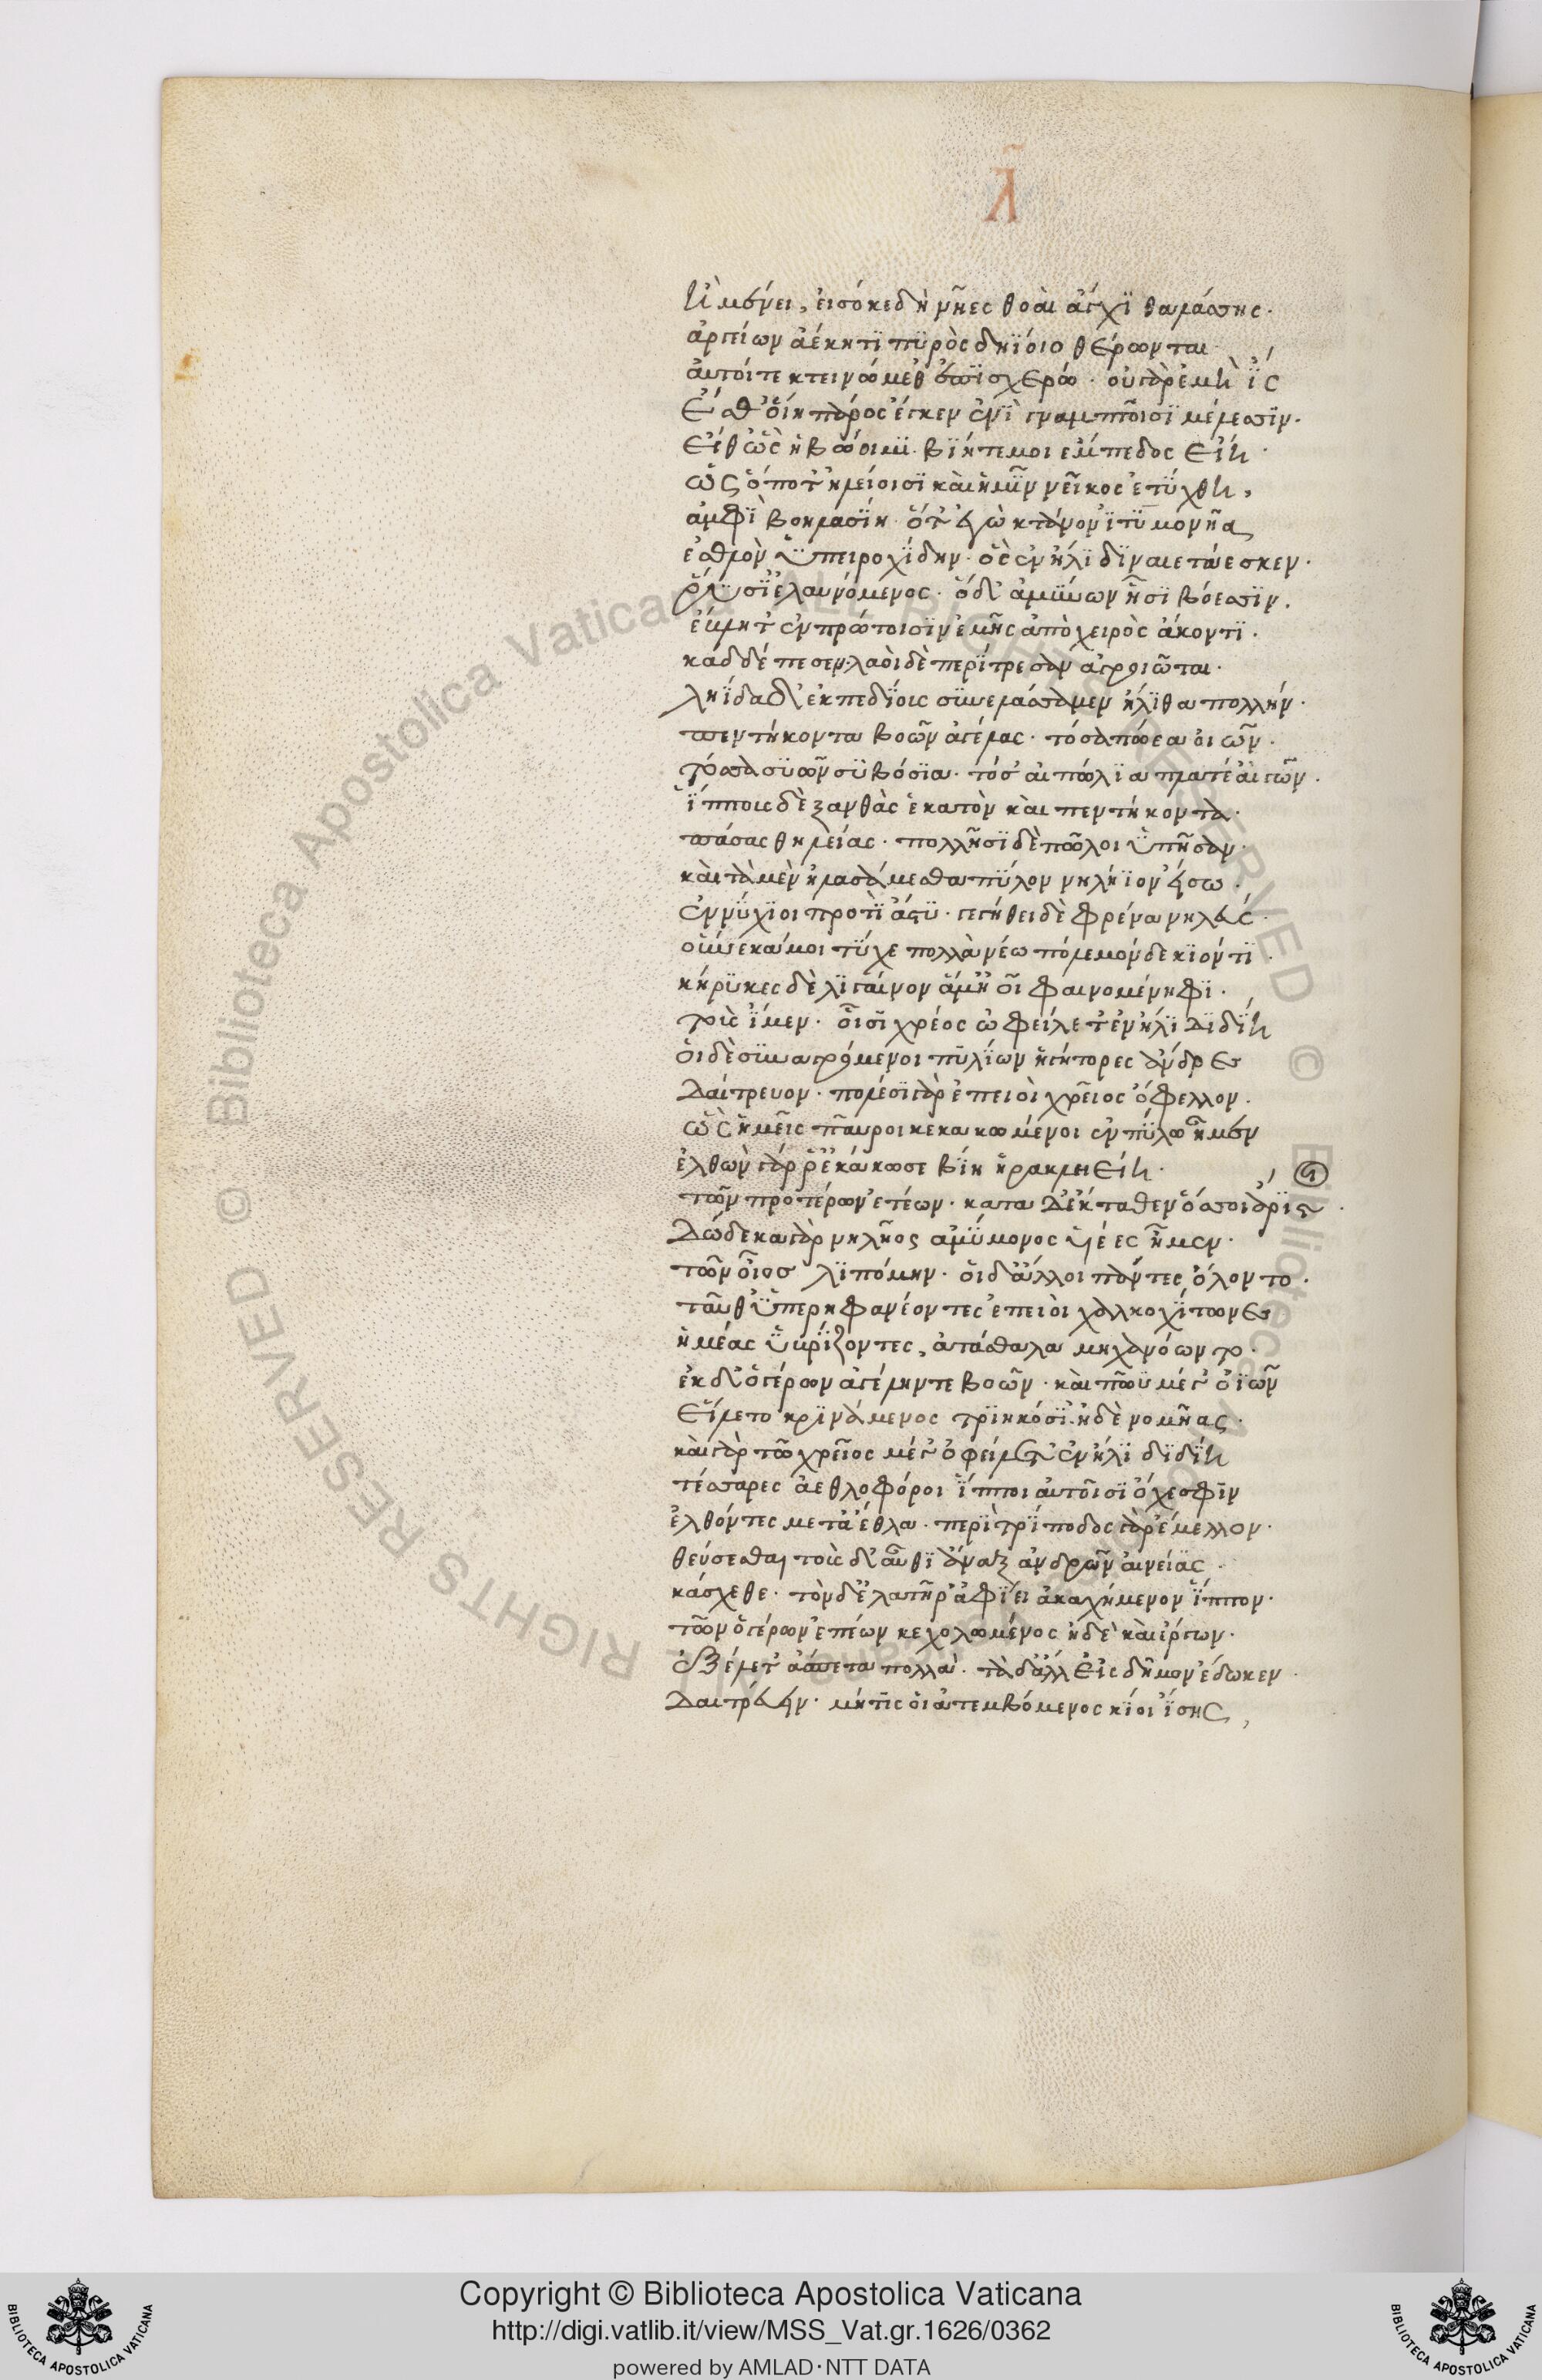 λ
ἢ μένει, εἰσόκε δὴ νῆες θοαὶ ἄγχι θαλάσσης·
ἀργείων ἀέκητι πυρὸς δηΐοιο θέρωνται
αὐτοί τε κτεινώμεθ' ἐπισχερώ· οὐ γὰρ ἐμὴ ἲς
ἔσθ' οἵη πάρος ἔσκεν ἐνὶ γναμπτοῖσι μέλεσσιν·
εἴθ' ὣς ἡβώοιμι· βίη τέ μοι ἔμπεδος εἴη·
ὡς ὁπότ' ἠλείοισι καὶ ἡμῖν νεῖκος ἐτύχθη,
ἀμφὶ βοηλασίη· ὅτ' ἐγὼ κτάνον ἰτυμονῆα
ἐσθλὸν ὑπειροχίδην· ὃς ἐν ἤλιδι ναιετάεσκεν·
ῥύσι' ἐλαυνόμενος· ὁ δ' ἀμύνων ᾗσι βόεσσιν.
ἔβλητ' ἐν πρώτοισιν ἐμῆς ἀπὸ χειρὸς ἄκοντι·
κὰδ δ' ἔπεσεν· λαοὶ δὲ περίτρεσαν ἀγροιῶται·
ληΐδα δ' ἐκ πεδίοις συνελάσσαμεν ἤλιθα πολλήν·
πεντήκοντα βοῶν ἀγέλας· τόσα πώεα οἰῶν·
τόσσα συῶν συβόσια· τόσ' αἰπόλια πλατέ' αἰγῶν·
ἵππους δὲ ξανθὰς ἑκατὸν καὶ πεντήκοντα·
πάσας θηλείας· πολλῇσι δὲ πῶλοι ὑπῆσαν·
καὶ τὰ μὲν ἠλασάμεσθα πύλον νηλήϊον εἴσω·
ἐννύχιοι προτὶ ἄστυ· γεγήθει δὲ φρένα νηλεύς·
οὕνεκά μοι τύχε πολλὰ νέω πόλεμον δὲ κιόντι·
κήρυκες δὲ λίγαινον ἅμ' ἠοῖ φαινομένηφι·
τοὺς ἴμεν· οἷσι χρέος ὠφείλετ' ἐν ἤλιδι δίη
οἱ δὲ συναγρόμενοι πυλίων ἡγήτορες ἄνδρες
δαίτρευον· πολέσι γὰρ ἐπειοὶ χρεῖος ὄφελλον.
ὡς ἡμεῖς παῦροι κεκακωμένοι ἐν πύλω ἦμεν
ἐλθὼν γάρ ῥ' ἐκάκωσε βίη ἡρακληείη·
τῶν προτέρων ἐτέων· κατὰ δ' ἔκταθεν ὅσσοι ἄριστοι·
δώδεκα γὰρ νηλῆος ἀμύμονος υἱέες ἦμεν·
τῶν οἶος λιπόμην· οἱ δ' ἄλλοι πάντες ὄλοντο·
ταῦθ' ὑπερηφανέοντες ἐπειοὶ χαλκοχίτωνες
ἡμέας ὑβρίζοντες, ἀτάσθαλα μηχανόωντο·
ἐκ δ' ὁ γέρων ἀγέλην τε βοῶν· καὶ πῶϋ μέγ' οἰῶν
εἵλετο κρινάμενος τριηκόσι' ἠδὲ νομῆας·
καὶ γὰρ τῶ χρεῖος μέγ' ὀφείλετ' ἐν ἤλιδι δίη
τέσσαρες ἀεθλοφόροι ἵπποι αὐτοῖσι ὄχεσφιν
ἐλθόντες μετ' ἄεθλα· περὶ τρίποδος γὰρ ἔμελλον·
θεύσεσθαι τοὺς δ' αὖθι ἄναξ ἀνδρῶν αὐγείας·
κάσχεθε· τὸν δ' ἐλατῆρ' ἀφίει ἀκαχήμενον ἵππων·
τῶν ὁ γέρων ἐπέων κεχολωμένος ἠδὲ καὶ ἔργων·
ἐξέλετ' ἄσπετα πολλά· τὰ δ' ἄλλ' εἰς δῆμον ἔδωκεν·
δαιτρεύειν· μή τις οἱ ἀτεμβόμενος κίοι ἴσης,
© Biblioteca Apostolica Vaticana ALL RIGHTS RESERVED © Biblioteca Apostolica Vaticana ALL RIGHTS RESERVED
Copyright © Biblioteca Apostolica Vaticana
http://digi.vatlib.it/view/MSS_Vat.gr.1626/0362
powered by AMLAD·NTT DATA
BIBLIOTECA APOSTOLICA VATICANA
BIBLIOTECA APOSTOLICA VATICANA